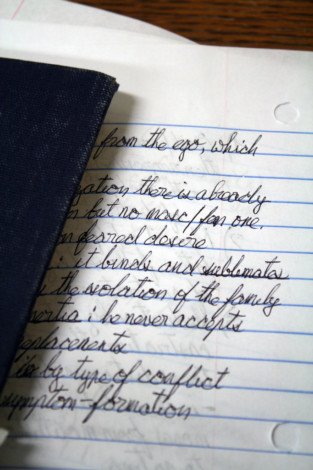 from the ego, which
gation there is already
but no masc/fem one.
geared desire
: it binds and sublimates
the isolation of the family
nertia : he never accepts
eplacements
by type of conflict
symptom-formation